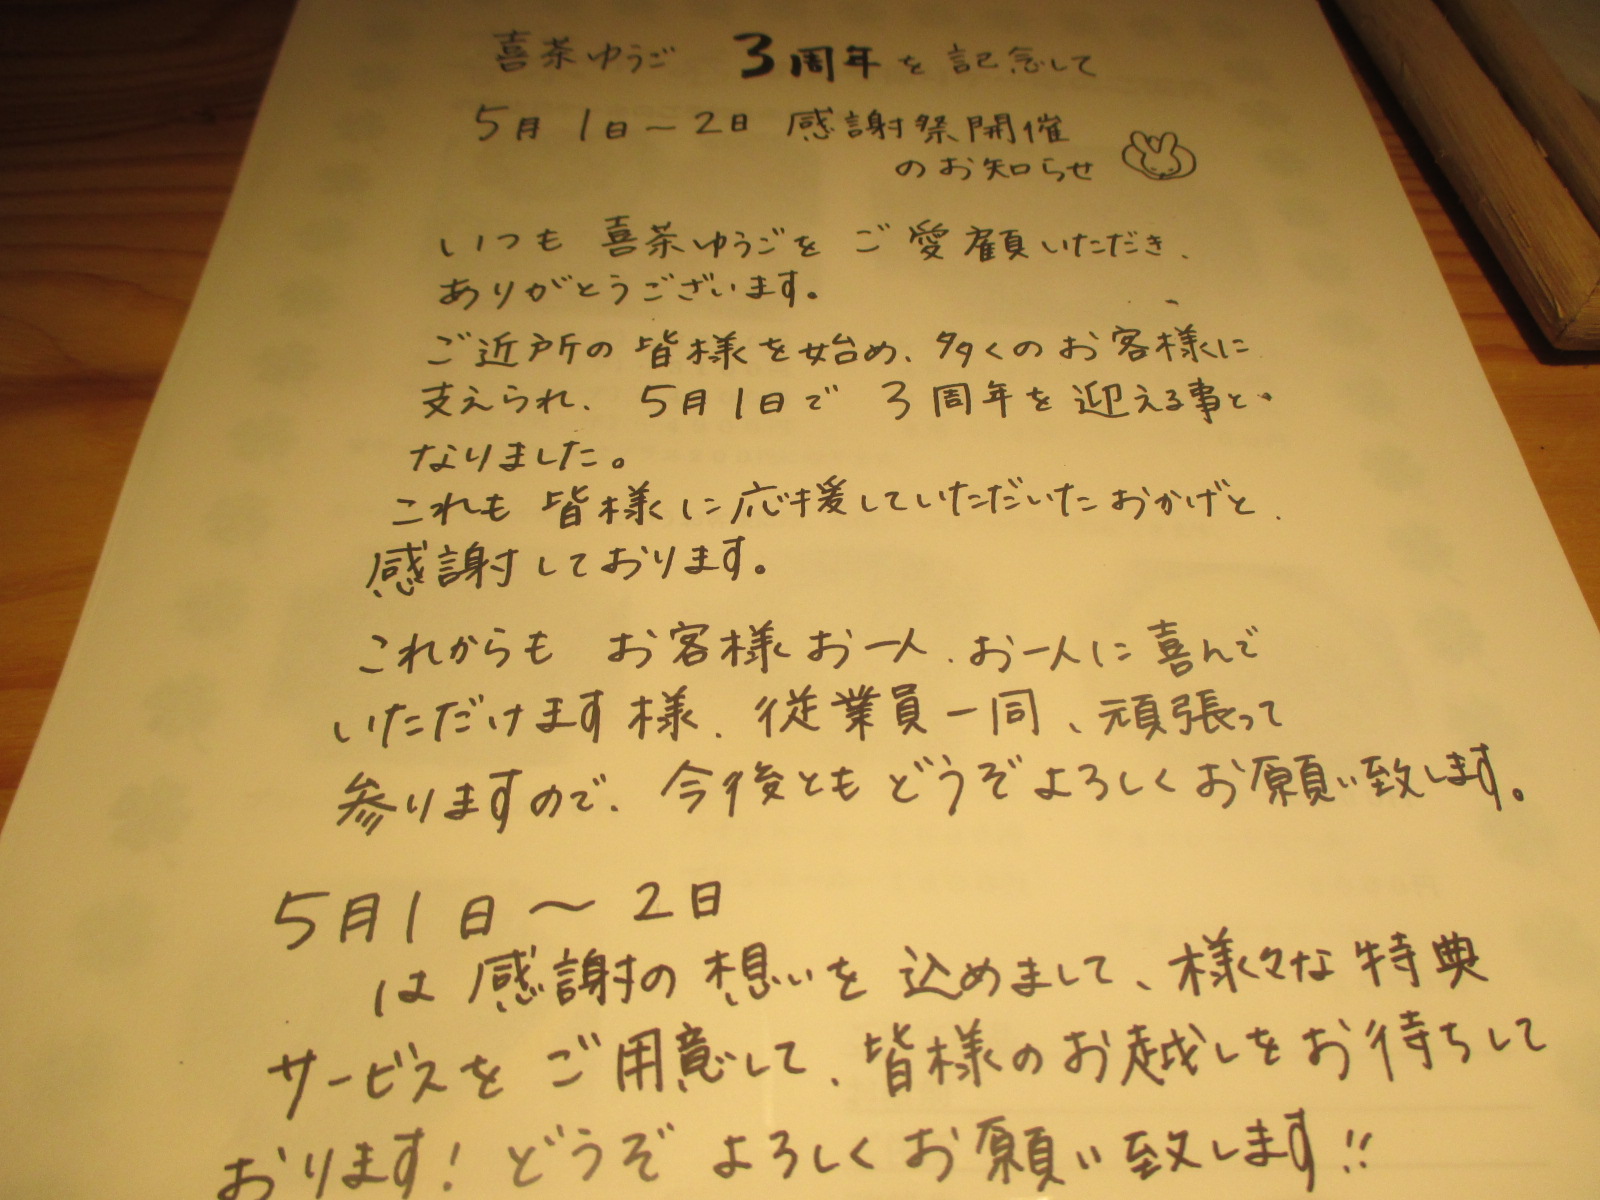 喜茶ゆうご 3周年を記念して
5月1日～2日 感謝祭開催
のお知らせ
いつも 喜茶ゆうごを ご愛顧いただき、
ありがとうございます。
ご近所の皆様を始め、多くのお客様に
支えられ、5月1日で 3周年を迎える事と
なりました。
これも 皆様に応援していただいたおかげと、
感謝しております。
これからも お客様お一人、お一人に喜んで
いただけます様、従業員一同、頑張って
参りますので、今後ともどうぞよろしくお願い致します。
5月1日～2日
は感謝の想いを込めまして、様々な特典
サービスをご用意して、皆様のお越しをお待ちして
おります!どうぞよろしくお願い致します!!